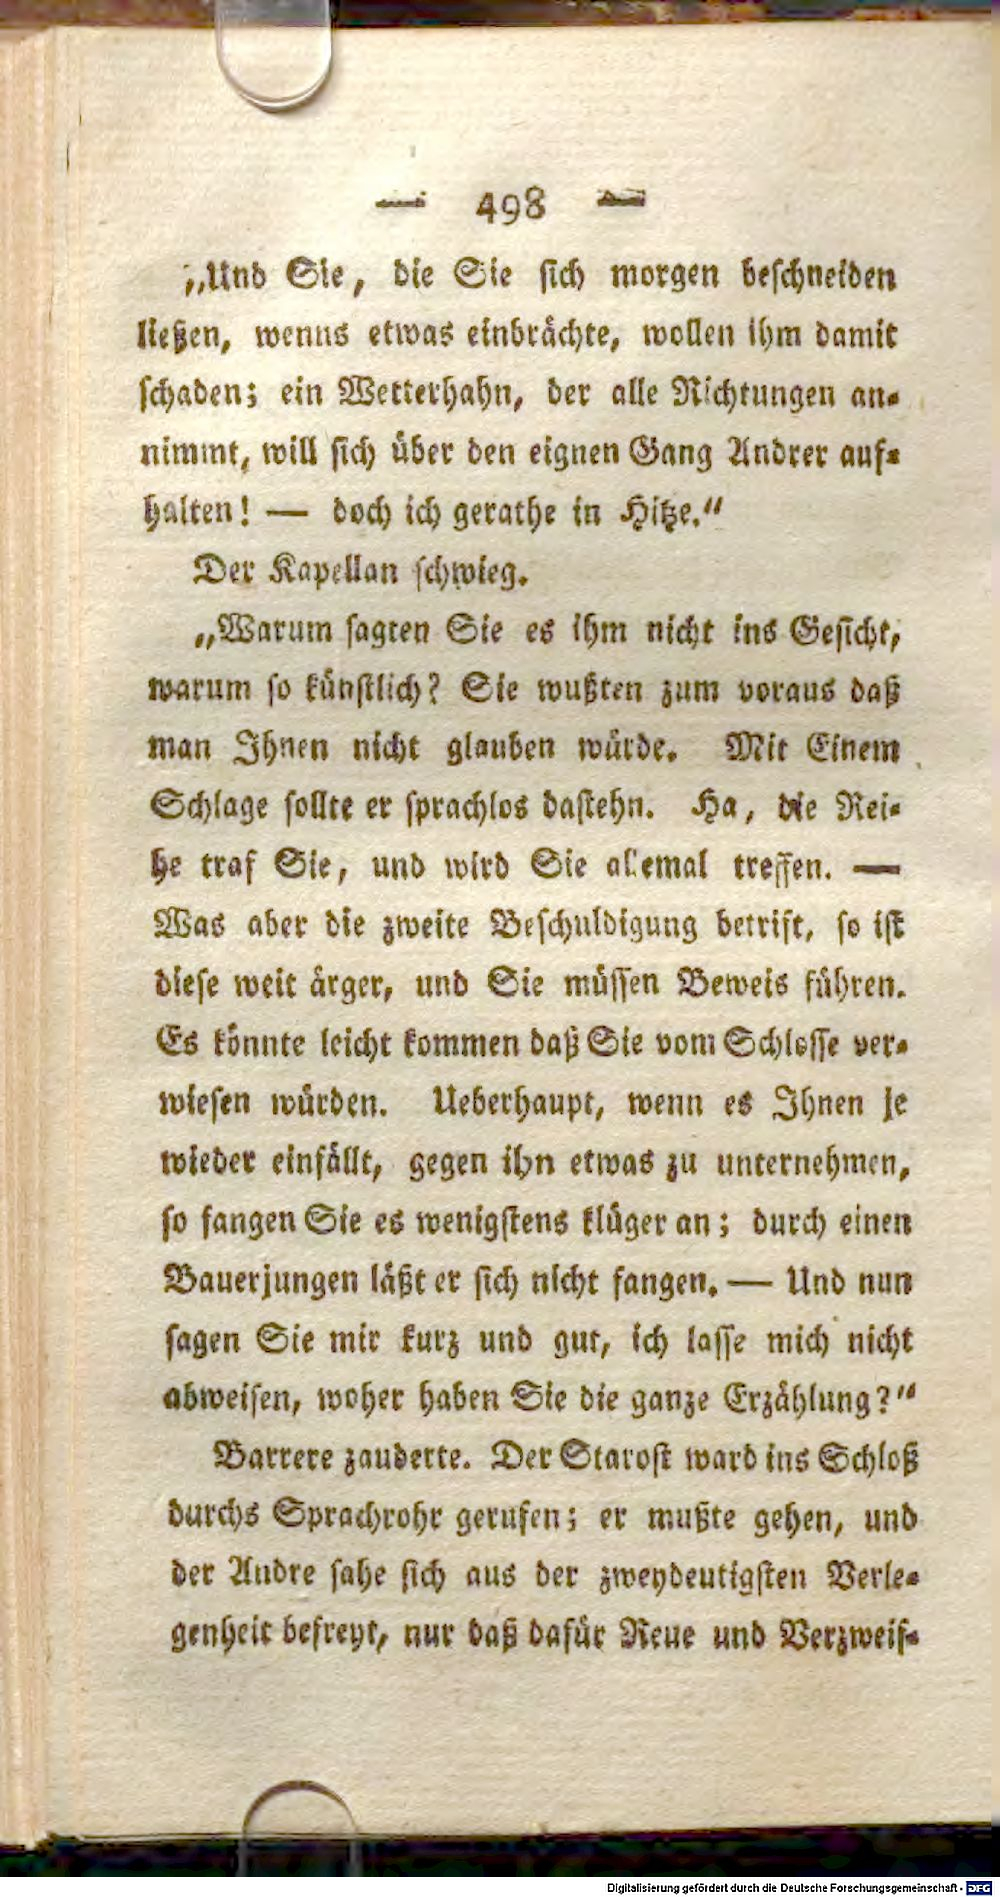 — 498 —
„Und Sie, die Sie sich morgen beschneiden
ließen, wenns etwas einbrächte, wollen ihm damit
schaden; ein Wetterhahn, der alle Richtungen an-
nimmt, will sich über den eignen Gang Andrer auf-
halten! — doch ich gerathe in Hitze.“
Der Kapellan schwieg.
„Warum sagten Sie es ihm nicht ins Gesicht,
warum so künstlich? Sie wußten zum voraus daß
man Ihnen nicht glauben würde. Mit Einem
Schlage sollte er sprachlos dastehn. Ha, die Rei-
he traf Sie, und wird Sie allemal treffen. —
Was aber die zweite Beschuldigung betrift, so ist
diese weit ärger, und Sie müssen Beweis führen.
Es könnte leicht kommen daß Sie vom Schlosse ver-
wiesen würden. Ueberhaupt, wenn es Ihnen je
wieder einfällt, gegen ihn etwas zu unternehmen,
so fangen Sie es wenigstens klüger an; durch einen
Bauerjungen läßt er sich nicht fangen. — Und nun
sagen Sie mir kurz und gut, ich lasse mich nicht
abweisen, woher haben Sie die ganze Erzählung?“
Barrere zauderte. Der Starost ward ins Schloß
durchs Sprachrohr gerufen; er mußte gehen, und
der Andre sahe sich aus der zweydeutigsten Verle-
genheit befreyt, nur daß dafür Reue und Verzweif-
Digitalisierung gefördert durch die Deutsche Forschungsgemeinschaft - DFG